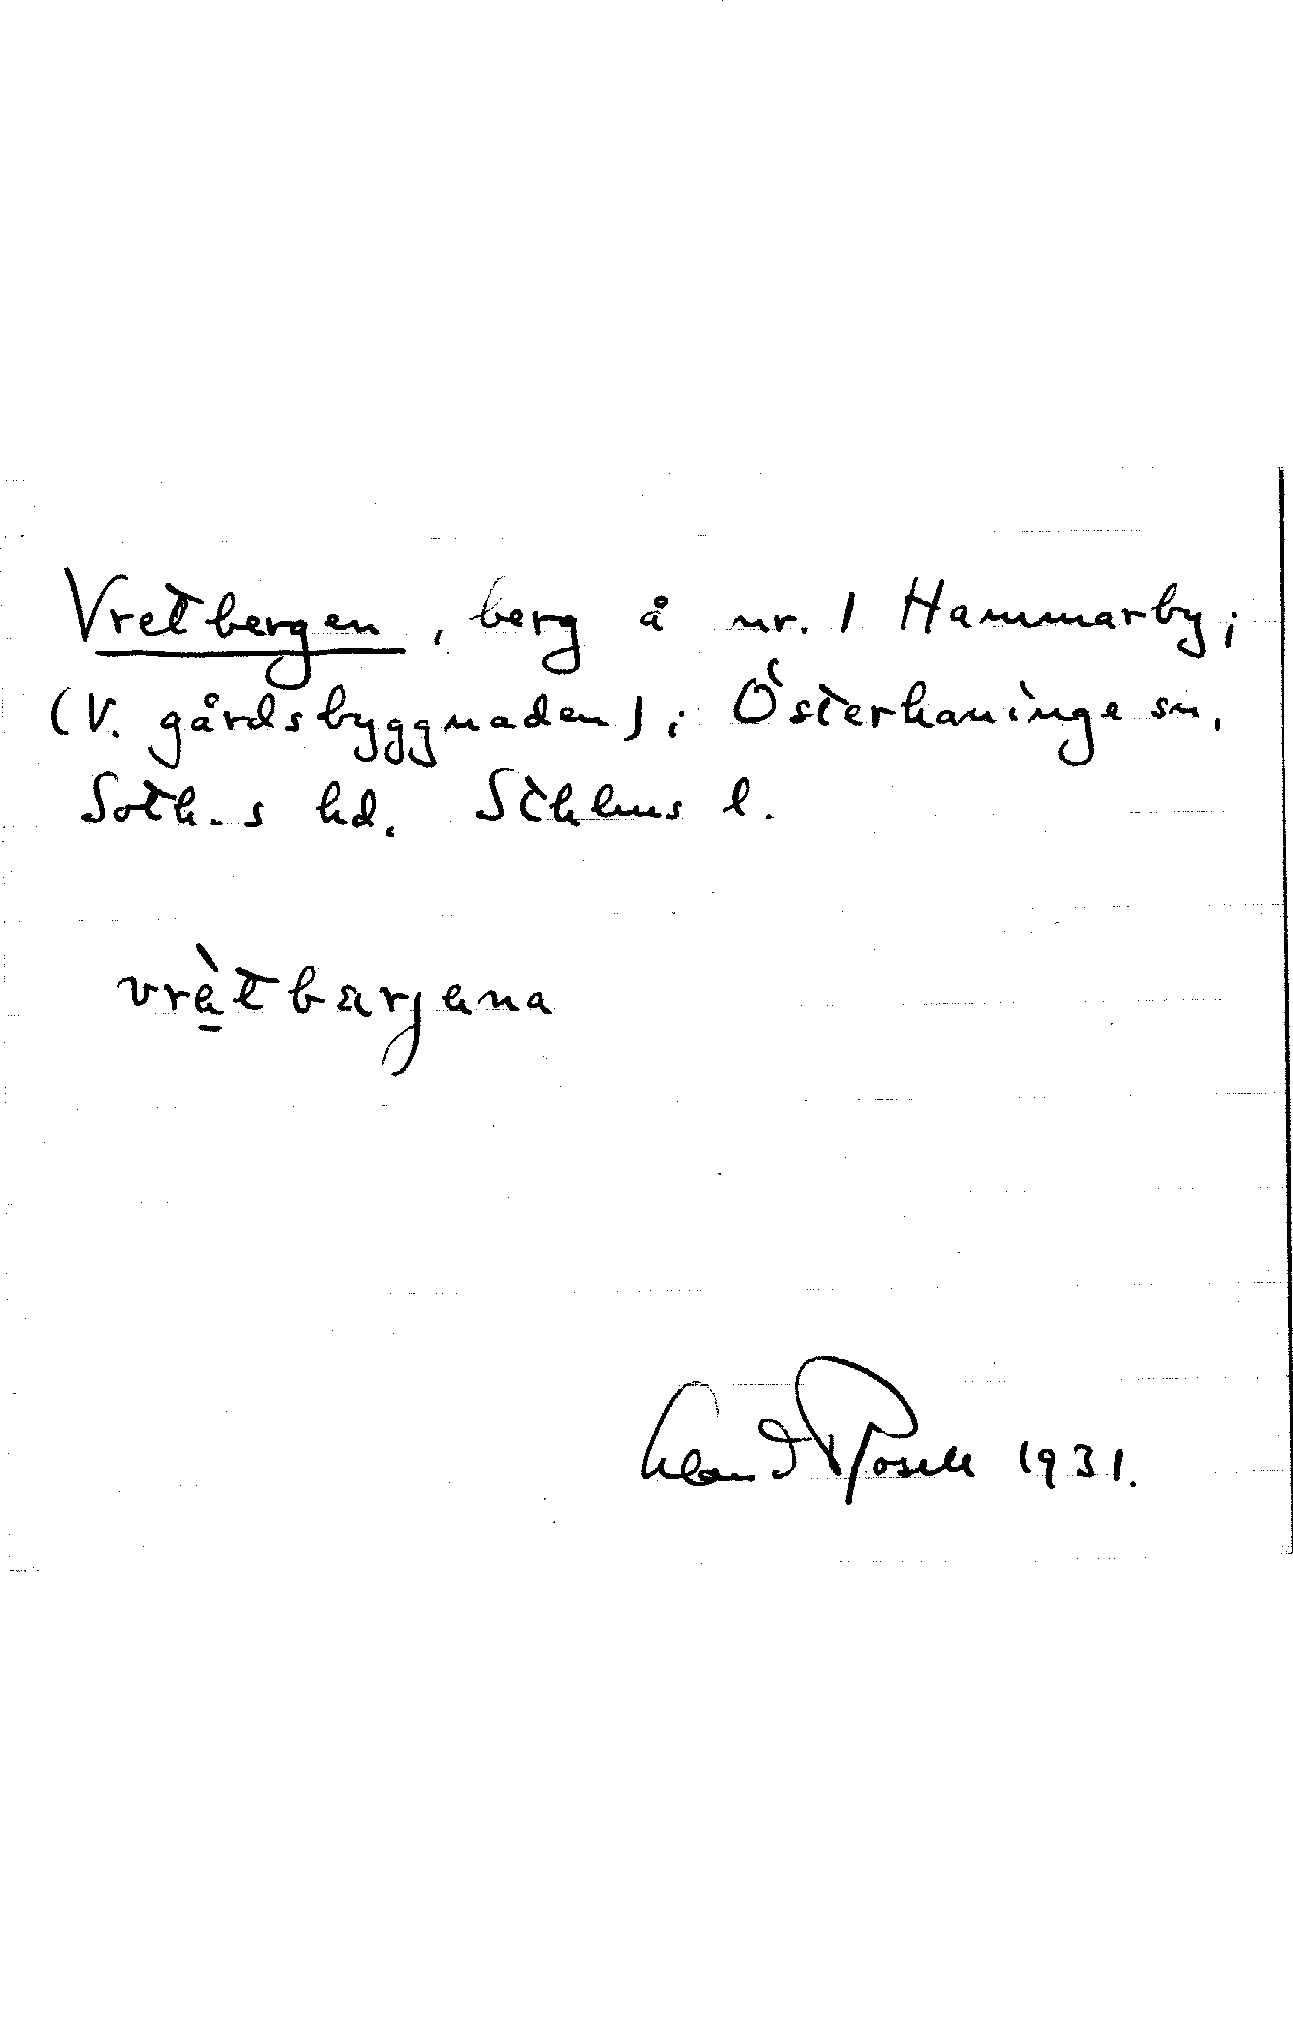 Vretbergen, berg å nr. 1 Hammarby;
(V. gårdsbyggnaden) i Österhaninge sn.
Soth. s hd. Sthlms l.
vrètbærjena
Rosell 1931.